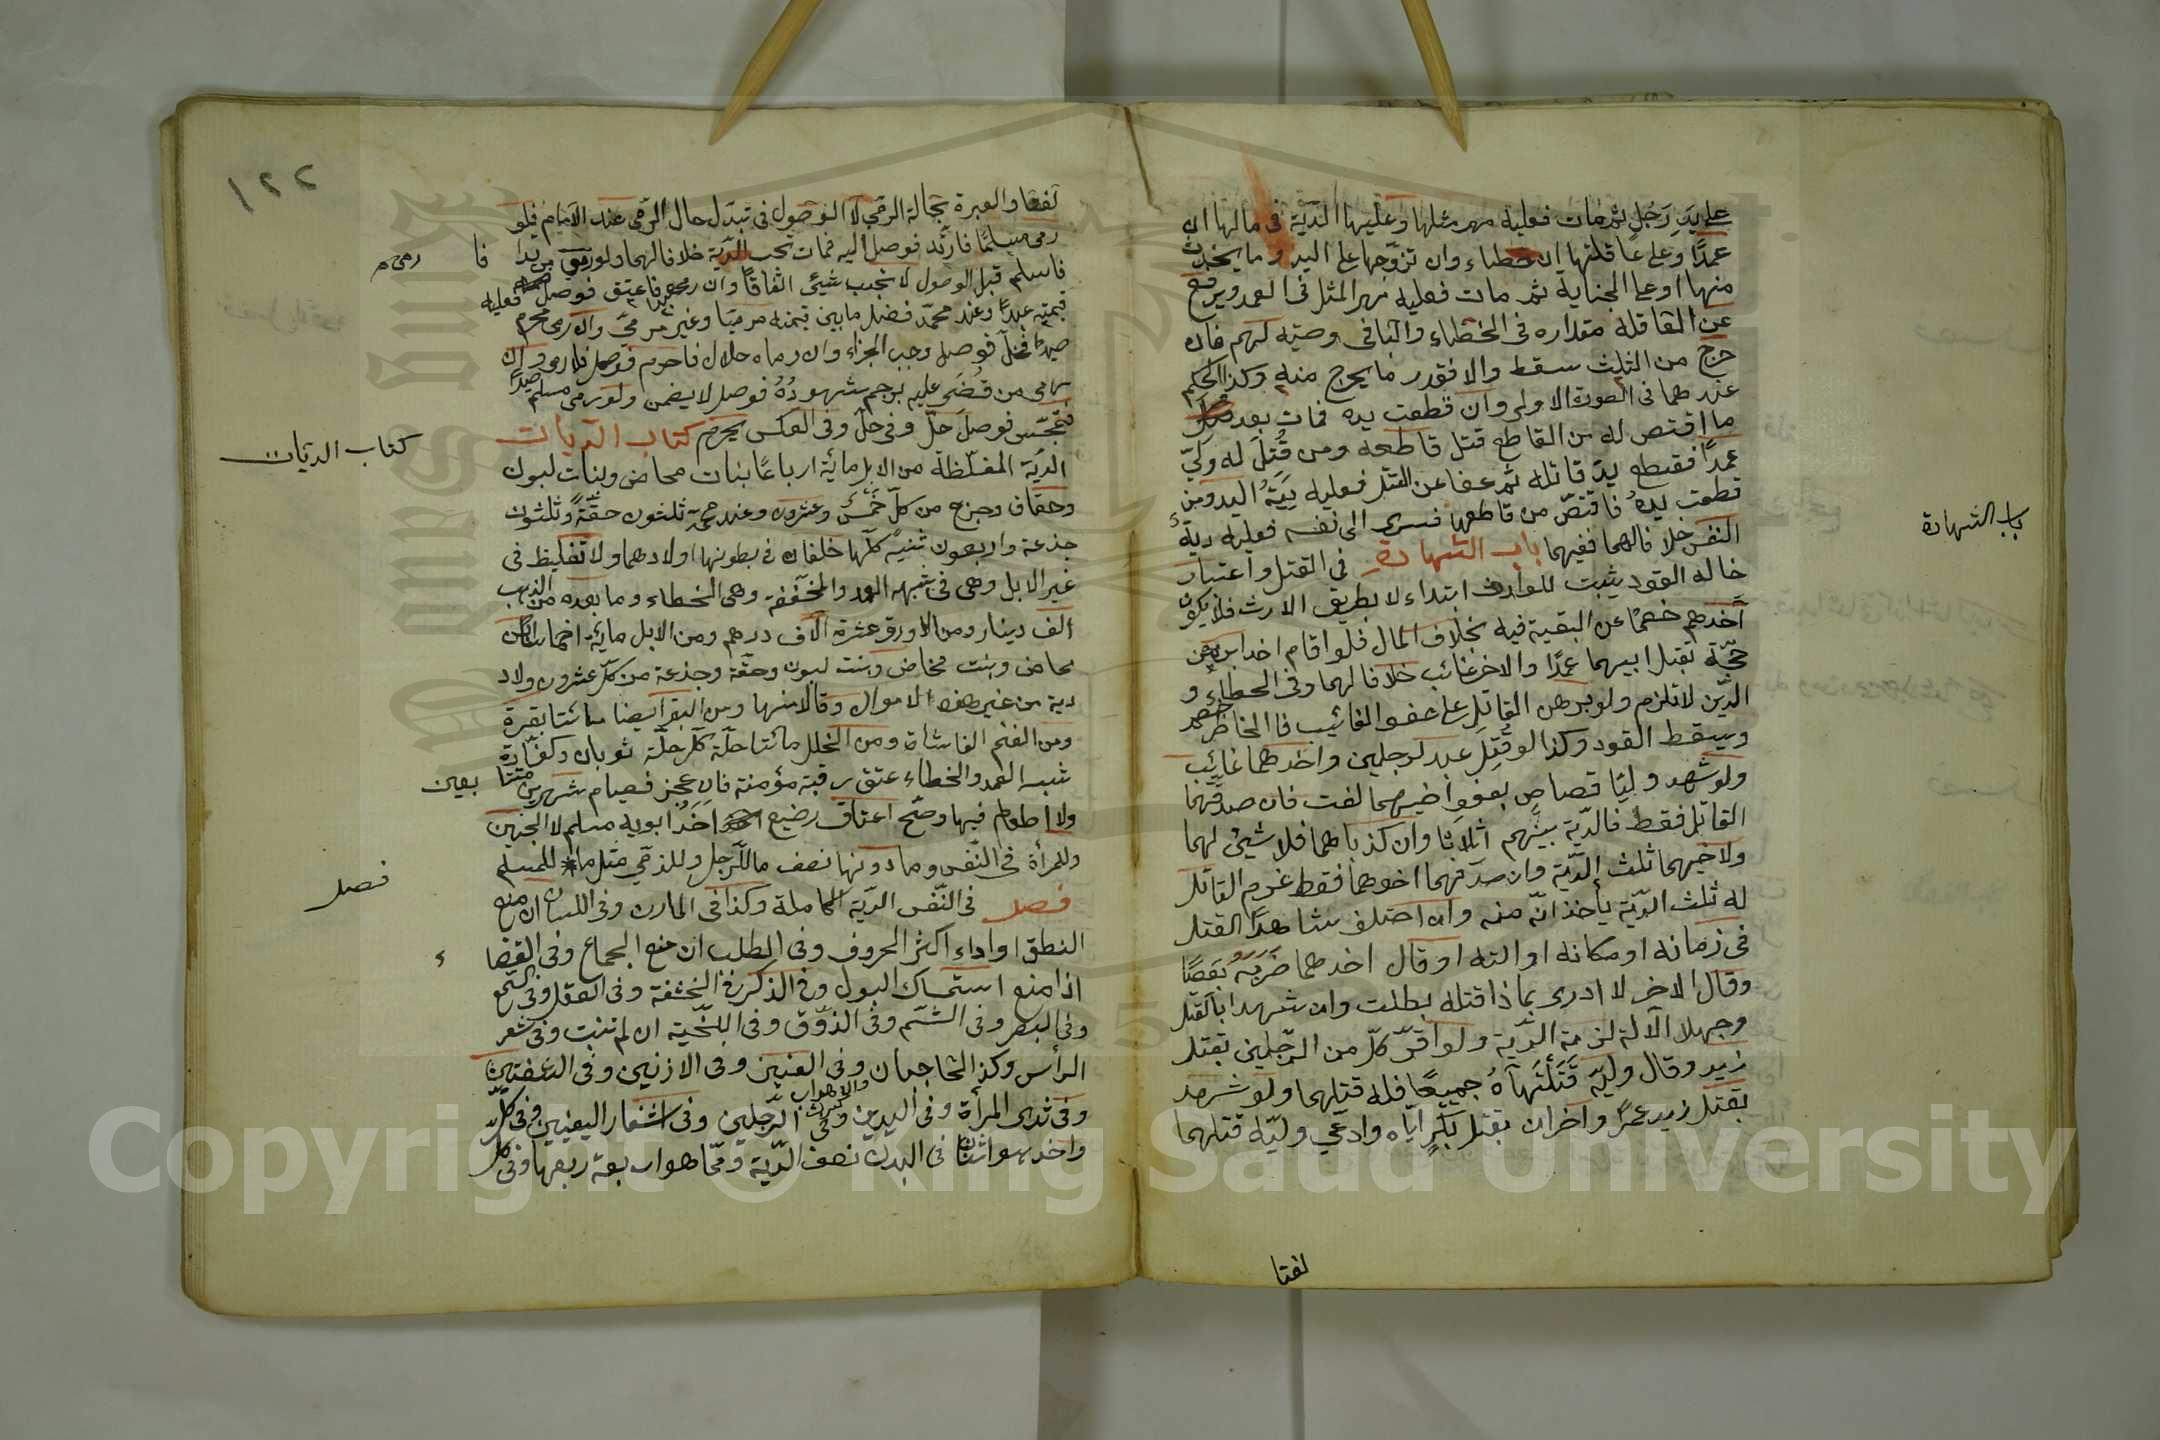 على يد رجل ثم مات فعليه مهر مثلها وعليها الدية في مالها ان
عمدًا وعلى عاقلتها ان خطاء وان تزوجها على اليد وما يحدث
منها او على الجناية ثم مات فعليه مهر المثل في العمد ويرفع
عن العاقلة مقداره في الخطاء والباقي وصية لهم فان
خرج من الثلث سقط والا فقدر ما يخرج منه وكذا الحكم
عندهما في الصورة الاولى وان قطعت يده فمات بعد
ما اقتص له من القاطع قتل قاطعه ومن قُتِلَ له وليّ
عمدًا فقطع يد قاتله ثم عفا عن القتل فعليه دية اليد ومن
قطعت يده فاقتصّ من قاطعها فسرى الى نفسه فعليه دية
النفس خلافا لهما ففيهما باب الشهادة في القتل واعتبار
حاله القود يثبت للوارث ابتداء لا بطريق الارث فلا يكون
احدهم خصمًا عن البقية فيه بخلاف المال فلو اقام احد ابنين
حجّة بقتل ابيهما عمدًا والاخر غائب خلافا لهما وفي الخطاء و
الدين لا تلزم ولو برهن القاتل على عفو الغائب فالحاضر خصم
ويسقط القود وكذا لو قُتِلَ عبد لرجلين واحدهما غائب
ولو شهد وليّا قصاص بعفو اخيهما لغت فان صدقهما
القاتل فقط فالدية بينهم اثلاثا وان كذباهما فلا شيئ لهما
ولاخيهما ثلث الدية وان صدقهما اخوهما فقط غرم القاتل
له ثلث الدية يأخذانّه منه وان اختلف شاهدا القتل
في زمانه او مكانه او الته او قال احدهما ضَرَبَهُ بعصًا
وقال الاخر لا ادرى بماذا قتله بطلت وان شهدا بالقتل
وجهلا الآلة لزمه الدية ولو اقرّ كلّ من الرجلين بقتل
زيد وقال وليّه قَتَلْتُمَاهُ جميعًا فله قتلهما ولو شهد
بقتل زيد عمرًا واخران بقتل بكرٍ ايّاه وادعى وليّه قتلهما
باب الشهادة
لغتا
١٢٢
لغتا والعبرة بحالة الرمي لا الوصول في تبدل حال الرمي عند الامام فلو
رمى مسلمًا فارتد فوصل اليه فمات تجب الدية خلافا لهما ولو رمى مرتدا
فاسلم قبل الوصول لا يجب شيئ اتفاقًا وان رمى عبدا فاعتق فوصل فعليه
قيمته عبدًا وعند محمد فضل ما بين قيمته مرميّا وغير مرميّ وان رمى محرم
صيدًا فحلّ فوصل وجب الجزاء وان رماه حلال فاحرم فوصل فلا وان
رمى من قُضَى عليه برجم شهودُهُ فوصل لا يضمن ولو رمى مسلم صيدًا
فتمجّس فوصل حلّ وفي العكس يحرم كتاب الديات
الدية المغلّظة من الابل مائة ارباعًا بنات مخاض وبنات لبون
وحقاق وجذع من كلّ خمس وعشرون وعند محمد ثلثون حقّةً وثلثون
جذعة واربعون ثنية كلّها خلفان في بطونها اولادهما ولا تغليظ في
غير الابل وهي في شبه العمد والمخففة وهي الخطاء وما بعده من الذهب
الف دينار ومن الورق عشرة آلاف درهم ومن الابل مائة اخماسًا ابن
مخاض وبنت مخاض وبنت لبون وحقّة وجذعة من كلّ عشرون ولا
دية من غير هذه الاموال وقالا منها ومن البقر ايضا مائتا بقرة
ومن الغنم الفا شاة ومن الحلل مائتا حلّة كل حلّة ثوبان وكفّارة
شبه العمد والخطاء عتق رقبة مؤمنة فان عجز فصيام شهرين متتا بعين
ولا اطعام فيها وصحّ اعتاق رضيع احد ابويه مسلم لا الجنين
وللمرأة في النّفس وما دونها نصف ما للرّجل وللذمّي مثل ما للمسلم
فصل في النّفس الدية الكاملة وكذا في المارن وفي اللسان ان منع
النطق او اداء اكثر الحروف وفي الصلب ان منع الجماع وفي افضا
اذا منع استمساك البول وفي الذكر وفي الحشفة وفي العقل وفي السمع
وفي البصر وفي الشّم وفي الذّوق وفي اللّحية ان لم تنبت وفي شعر
الرأس وكذا الحاجبان وفي العينين وفي الاذنين وفي الشفتين
وفي ثدي المرأة وفي اليدين وفي الرّجلين وفي اشفار العينين وفي كلّ
واحد مما هو اثنان في البدن نصف الدّية وممّا هو اربعة ربعها وفي كل
فا رمى م
كتاب الديات
فصل
ء